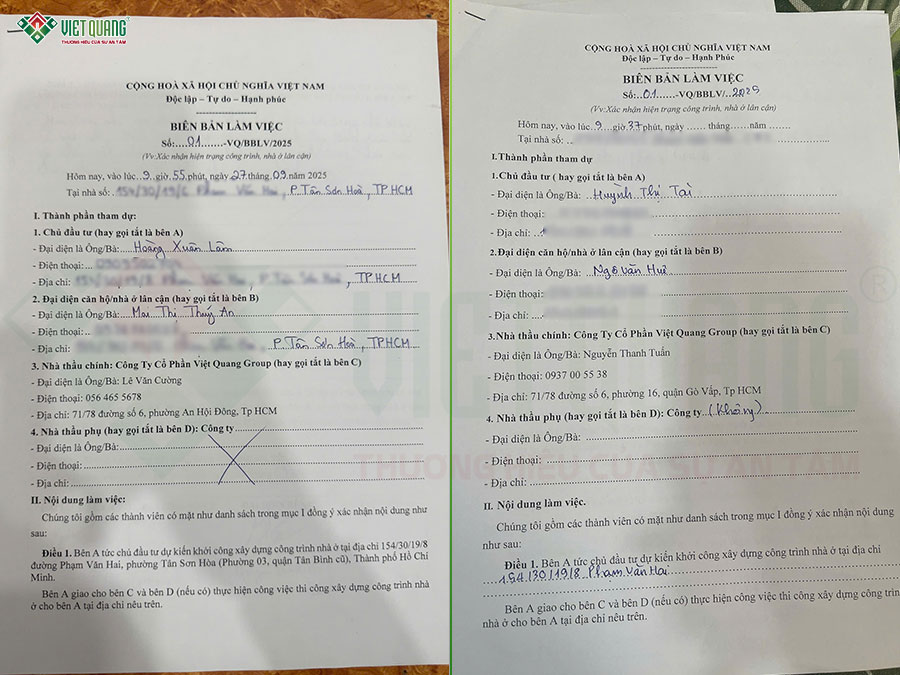 VIỆT QUANG
THƯƠNG HIỆU CỦA SỰ AN TÂM
CỘNG HOÀ XÃ HỘI CHỦ NGHĨA VIỆT NAM
Độc lập – Tự do – Hạnh phúc
BIÊN BẢN LÀM VIỆC
Số: 01 -VQ/BBLV/2025
(Vv: Xác nhận hiện trạng công trình, nhà ở lân cận)
Hôm nay, vào lúc 9 giờ 55 phút, ngày 27 tháng 09 năm 2025
Tại nhà số: P. Tân Sơn Hoà, TP HCM
I. Thành phần tham dự:
1. Chủ đầu tư (hay gọi tắt là bên A)
- Đại diện là Ông/Bà: Hoàng Xuân Lâm
- Điện thoại:
- Địa chỉ: , TP HCM
2. Đại diện căn hộ/nhà ở lân cận (hay gọi tắt là bên B)
- Đại diện là Ông/Bà: Mai Thị Thúy An
- Điện thoại:
- Địa chỉ: P. Tân Sơn Hoà, TP HCM
3. Nhà thầu chính: Công Ty Cổ Phần Việt Quang Group (hay gọi tắt là bên C)
- Đại diện là Ông/Bà: Lê Văn Cường
- Điện thoại: 056 465 5678
- Địa chỉ: 71/78 đường số 6, phường An Hội Đông, Tp HCM
4. Nhà thầu phụ (hay gọi tắt là bên D): Công ty
- Đại diện là Ông/Bà:
- Điện thoại:
- Địa chỉ:
II. Nội dung làm việc:
Chúng tôi gồm các thành viên có mặt như danh sách trong mục I đồng ý xác nhận nội dung như
sau:
Điều 1. Bên A tức chủ đầu tư dự kiến khởi công xây dựng công trình nhà ở tại địa chỉ 154/30/19/8
đường Phạm Văn Hai, phường Tân Sơn Hòa (Phường 03, quận Tân Bình cũ), Thành phố Hồ Chí
Minh.
Bên A giao cho bên C và bên D (nếu có) thực hiện công việc thi công xây dựng công trình nhà
ở cho bên A tại địa chỉ nêu trên.
CỘNG HOÀ XÃ HỘI CHỦ NGHĨA VIỆT NAM
Độc lập – Tự do – Hạnh Phúc
BIÊN BẢN LÀM VIỆC
Số: 01 -VQ/BBLV/ 2025
(Vv: Xác nhận hiện trạng công trình, nhà ở lân cận)
Hôm nay, vào lúc 9 giờ 37 phút, ngày tháng năm
Tại nhà số:
I. Thành phần tham dự
1. Chủ đầu tư ( hay gọi tắt là bên A)
- Đại diện là Ông/Bà: Huỳnh Thị Tài
- Điện thoại:
- Địa chỉ:
2. Đại diện căn hộ/nhà ở lân cận (hay gọi tắt là bên B)
- Đại diện là Ông/Bà: Ngô Văn Huê
- Điện thoại:
- Địa chỉ:
3. Nhà thầu chính: Công Ty Cổ Phần Việt Quang Group (hay gọi tắt là bên C)
- Đại diện là Ông/Bà: Nguyễn Thanh Tuấn
- Điện thoại: 0937 00 55 38
- Địa chỉ: 71/78 đường số 6, phường 16, quận Gò Vấp, Tp HCM
4. Nhà thầu phụ (hay gọi tắt là bên D): Công ty (Không)
- Đại diện là Ông/Bà:
- Điện thoại:
- Địa chỉ:
II. Nội dung làm việc.
Chúng tôi gồm các thành viên có mặt như danh sách trong mục I đồng ý xác nhận nội dung
như sau:
Điều 1. Bên A tức chủ đầu tư dự kiến khởi công xây dựng công trình nhà ở tại địa chỉ
154/30/19/8 Phạm Văn Hai
Bên A giao cho bên C và bên D (nếu có) thực hiện công việc thi công xây dựng công trình
nhà ở cho bên A tại địa chỉ nêu trên.
VIỆT QUANG ®
THƯƠNG HIỆU CỦA SỰ AN TÂM